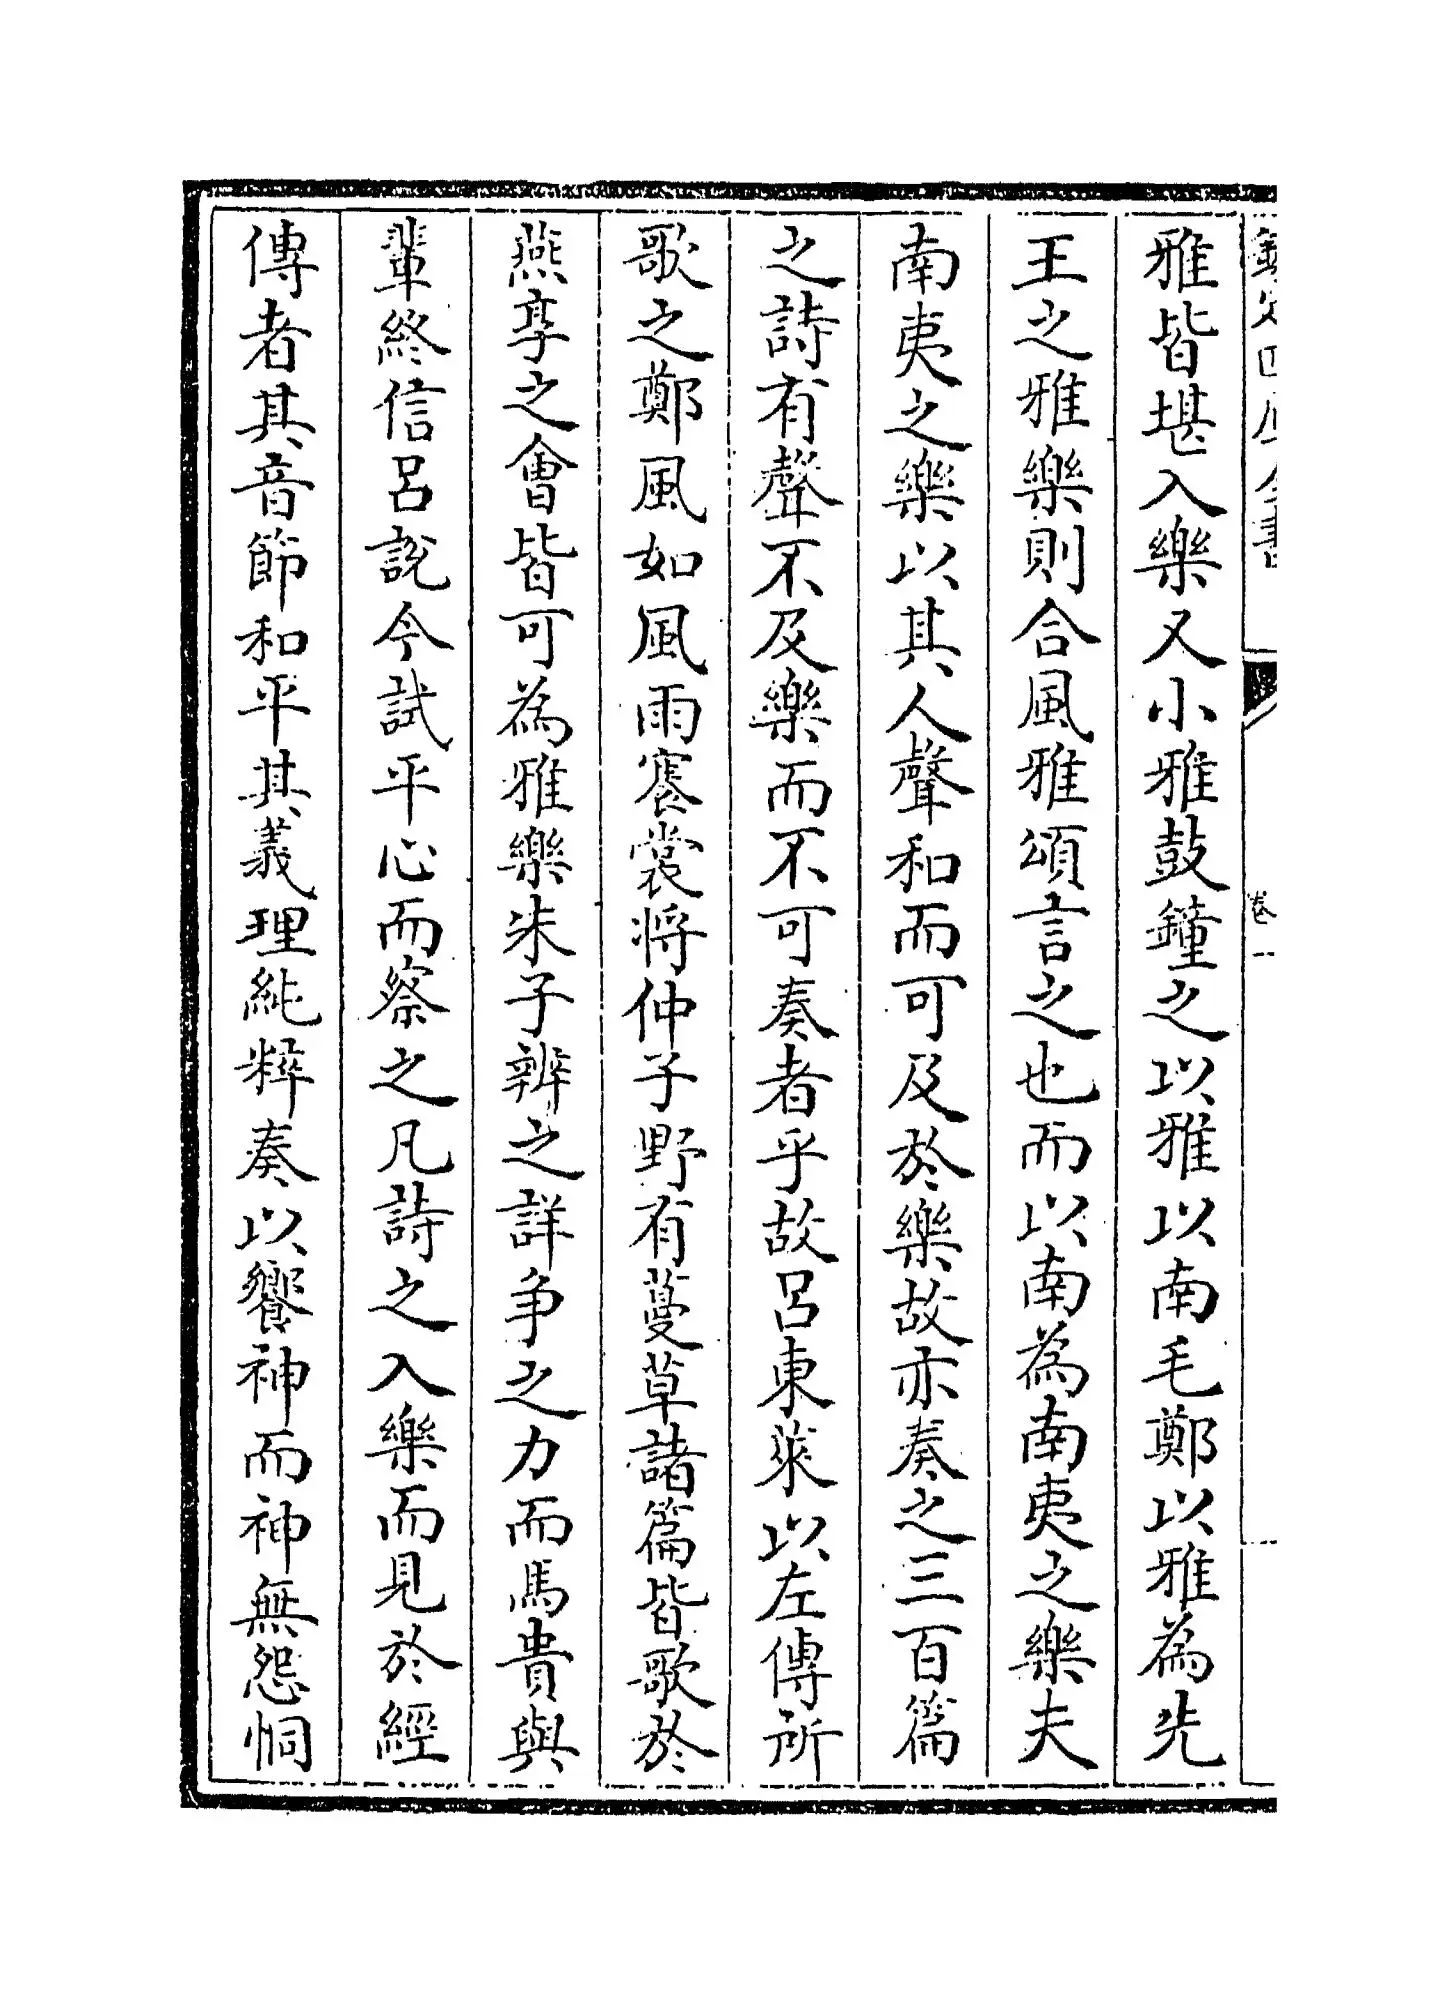 欽定四庫全書
卷一
雅皆堪入樂又小雅鼓鐘之以雅以南毛鄭以雅為先
王之雅樂則合風雅頌言之也而以南為南夷之樂夫
南夷之樂以其人聲和而可及於樂故亦奏之三百篇
之詩有聲不及樂而不可奏者乎故呂東萊以左傳所
歌之鄭風如風雨褰裳將仲子野有蔓草諸篇皆歌於
燕享之會皆可為雅樂朱子辨之詳爭之力而馬貴與
輩終信呂說今試平心而察之凡詩之入樂而見於經
傳者其音節和平其義理純粹奏以饗神而神無怨恫